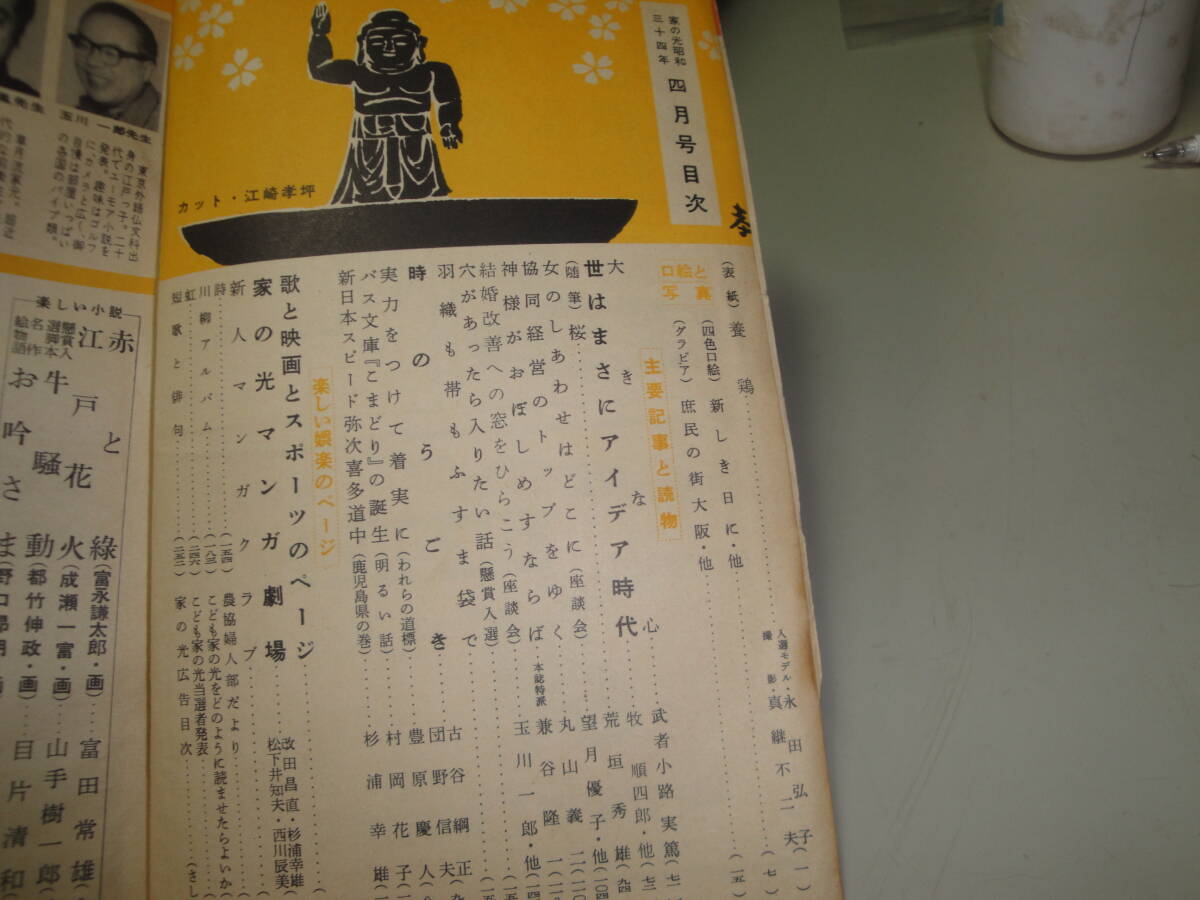 家の光昭和
三十四年
四月号目次
カット・江崎孝坪
口絵と写真
(表紙)養鶏
入選モデル・永田弘子(一)
撮影・真継不二夫(七)
(四色口絵)新しき日に・他
(グラビア)庶民の街大阪・他
(一五)
主要記事と読物
大きな心
武者小路実篤
世はまさにアイデア時代
牧順四郎・他
(随筆)桜
荒垣秀雄
女のしあわせはどこに(座談会)
望月優子・他
協同経営のトップをゆく
丸山義二
神様がおぼしめすならば
本誌特派
兼谷隆一
結婚改善への窓をひらこう(座談会)
玉川一郎・他
穴があったら入りたい話(懸賞入選)
羽織も帯もふすま袋で
古谷綱正
時のうごき
団野信夫
実力をつけて着実に(われらの道標)
豊原慶人
バス文庫『こまどり』の誕生(明るい話)
村岡花子
新日本スピード弥次喜多道中(鹿児島県の巻)
杉浦幸雄
楽しい娯楽のページ
歌と映画とスポーツのページ
家の光マンガ劇場
改田昌直・杉浦幸雄
松下井知夫・西川辰美
新人マンガクラブ
詩
(一五四)
川柳アルバム
(一八三)
虹
(二四六)
短歌と俳句
(二五二)
農協婦人部だより
こども家の光をどのように読ませたらよいか
こども家の光当選者発表
家の光広告目次
(さし
玉川一郎先生
東京外語仏文科出
身の江戸っ子。二十
代でユーモア小説を
発表。趣味はゴルフ
に、カメラと広く、御
自慢は部屋いっぱい
の各国のパイプ類。
楽しい小説
赤と綠
(富永謙太郎・画)
富田常雄
江戸花火
(成瀬一富・画)
山手樹一郎
懸賞入
選脚本
名作
絵物語
牛騒動
(都竹伸政・画)
目片清和
お吟さま